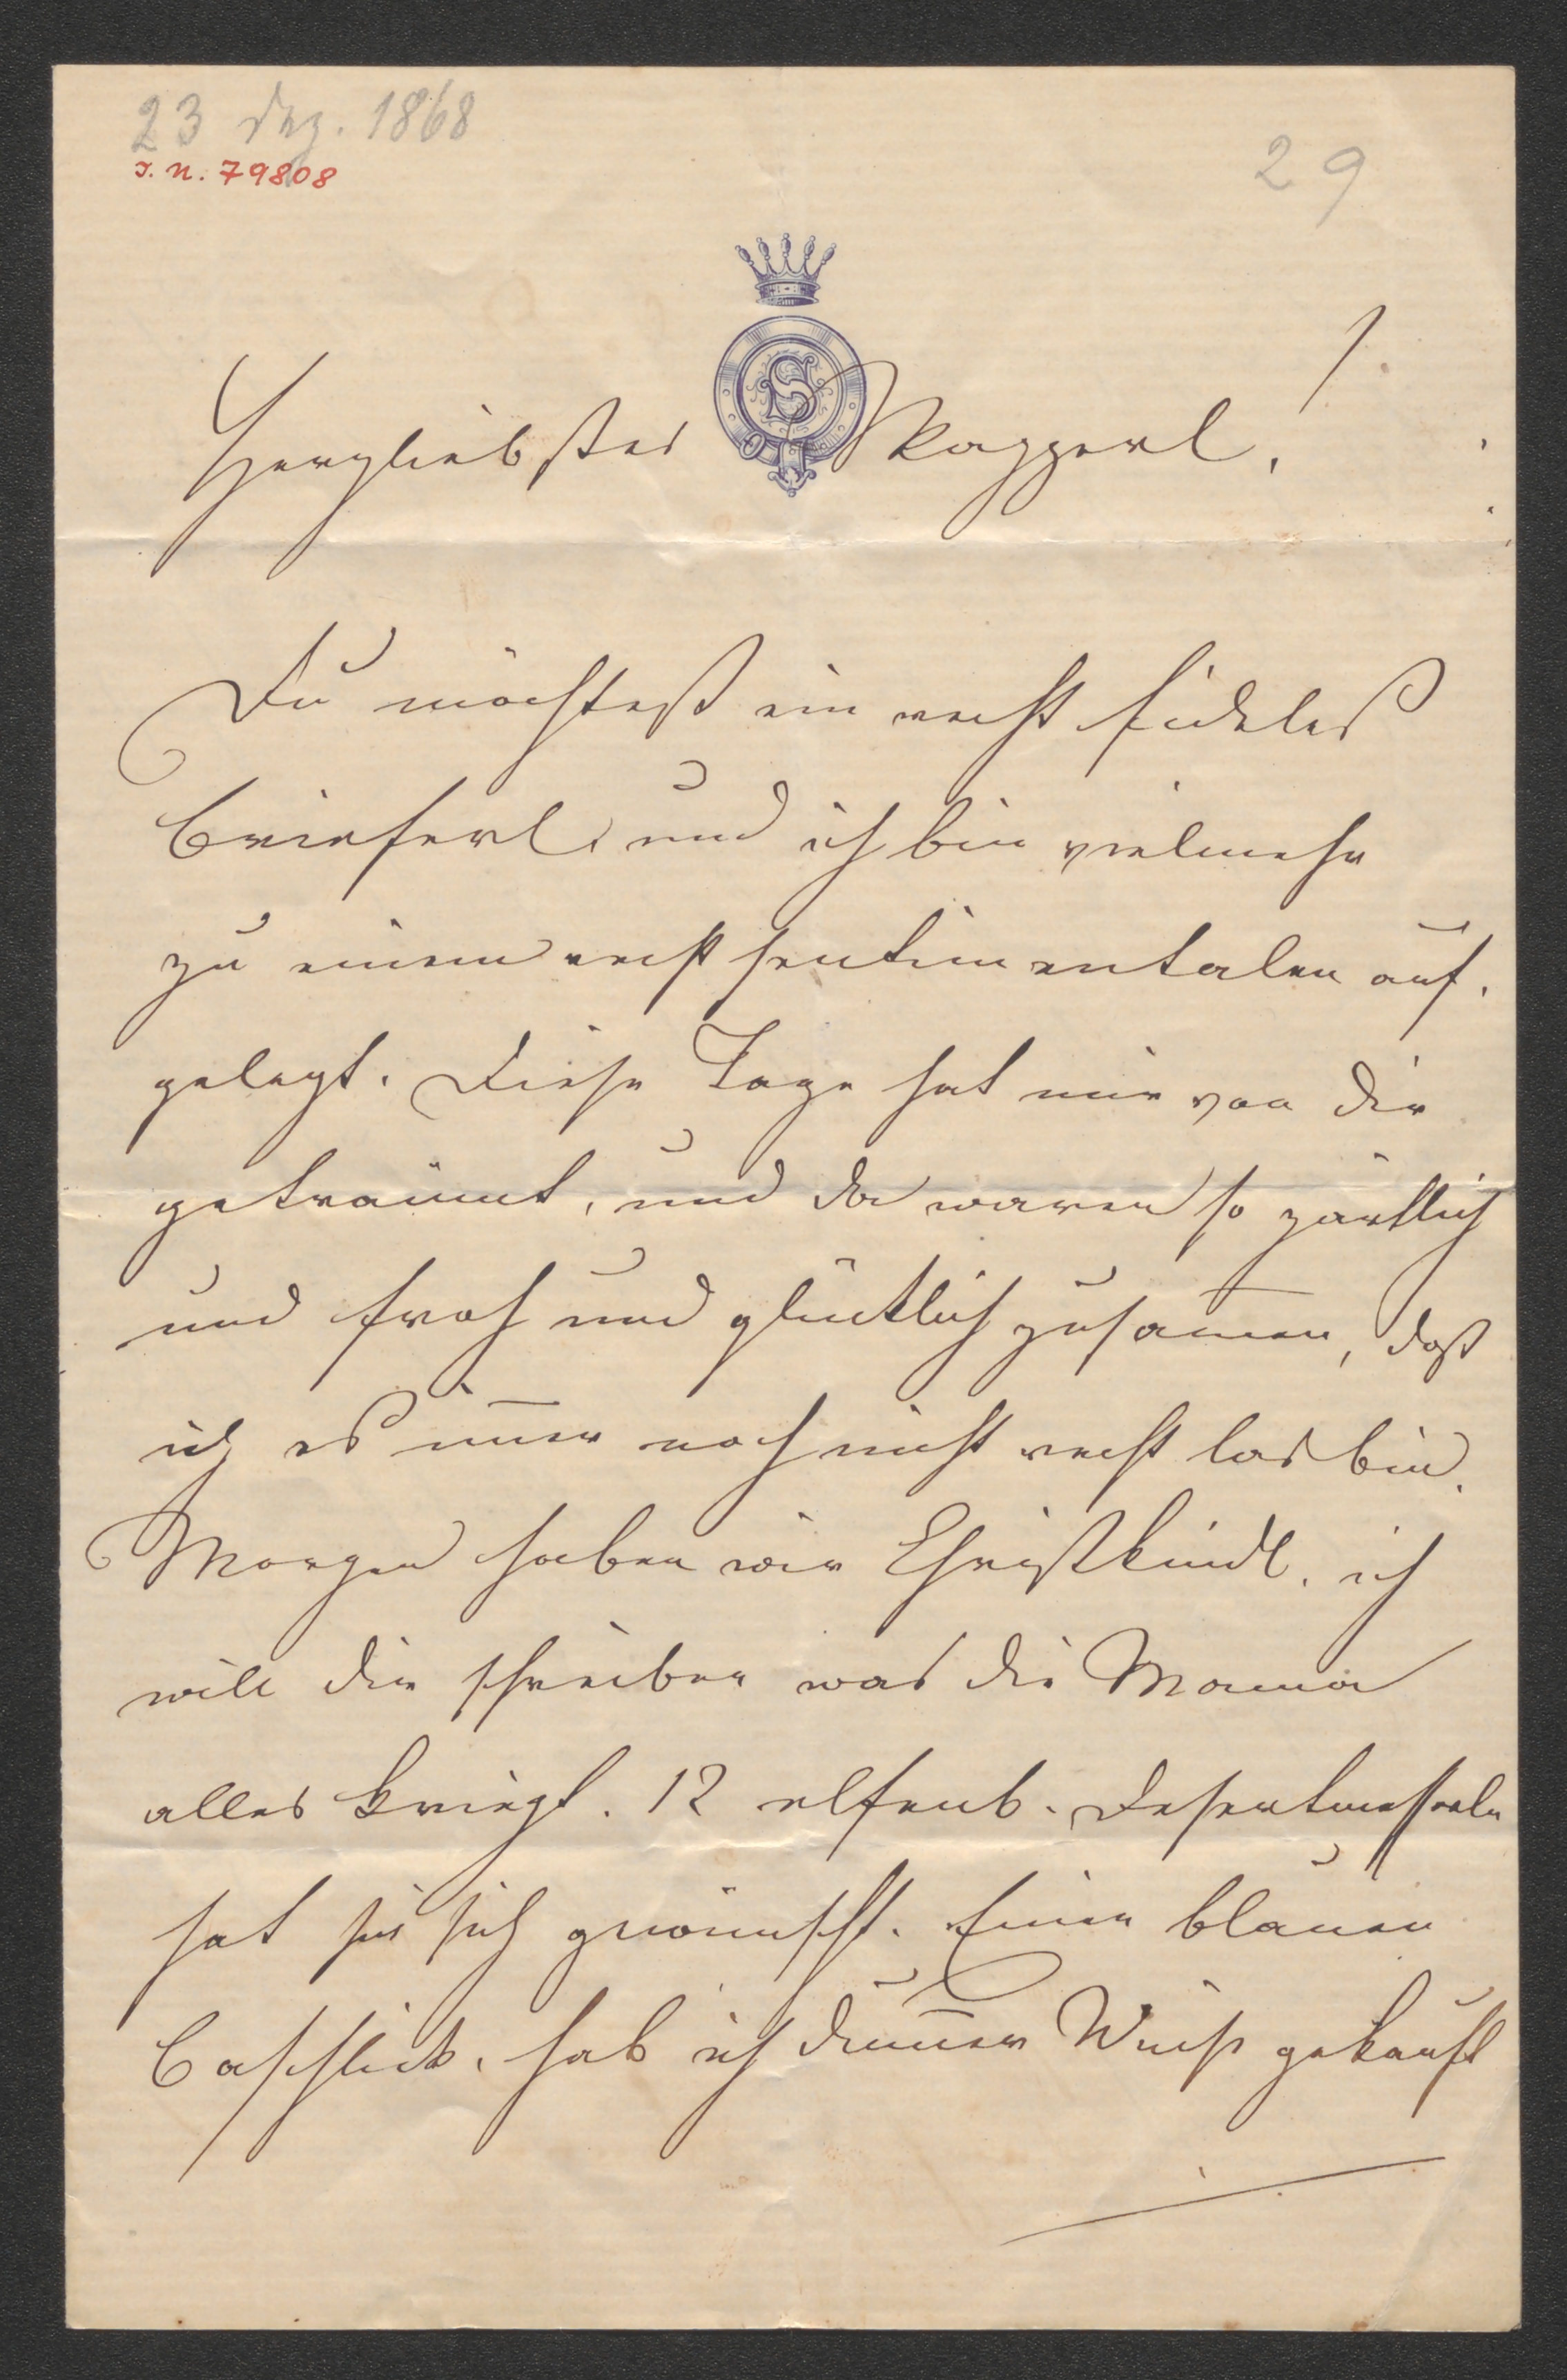 23 Dez. 1868
I. N. 79808
29
S
1.
Herzliebstes Mazzerl,
Du möchtest ein recht fideles
Brieferl, und ich bin vielmehr
zu einem recht sentimentalen auf-
gelegt. Diese Tage hat mir von Dir
geträumt, und da waren so zärtlich
und froh und glücklich zusam̄en, daß
ich es im̄er noch nicht recht los bin.
Morgen haben wir Christkindl. ich
will Dir schreiben was die Mama
alles kriegt. 12 elfenb. Desertmesserln
hat sie sich gewünscht. Einen blauen
Baschlick, hab ich dum̄er Weise gekauft